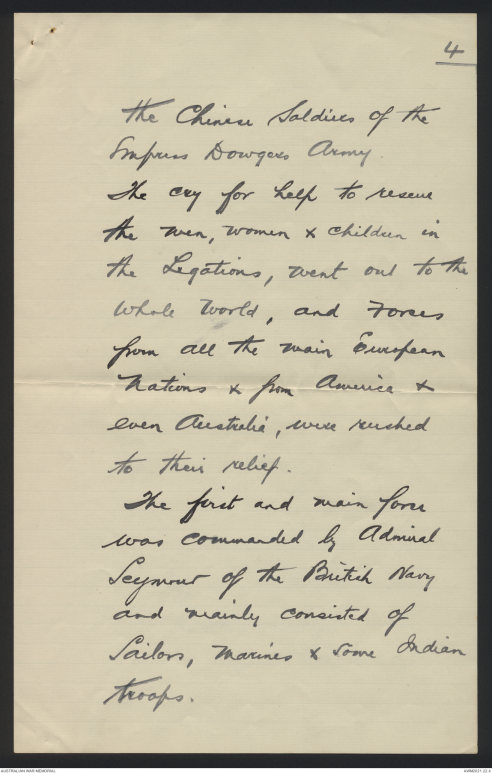 4
the Chinese Soldiers of the
Empress Dowgers Army.
The cry for help to rescue
the men, women & children in
the Legations, went out to the
whole world, and Forces
from all the main European
Nations & from America &
even Australia, were rushed
to their relief.
The first and main force
was commanded by Admiral
Seymour of the British Navy
and mainly consisted of
Sailors, Marines & some Indian
troops.
AUSTRALIAN WAR MEMORIAL